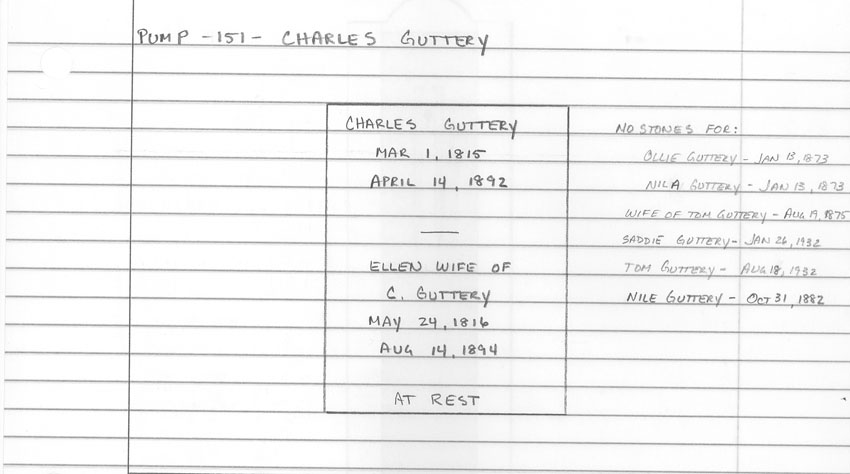 PUMP -151- CHARLES GUTTERY
CHARLES GUTTERY
MAR 1, 1815
APRIL 14, 1892
ELLEN WIFE OF
C. GUTTERY
MAY 24, 1816
AUG 14, 1894
AT REST
NO STONES FOR:
OLLIE GUTTERY - JAN 13, 1873
NILA GUTTERY - JAN 13, 1873
WIFE OF TOM GUTTERY - AUG 19, 1875
SADDIE GUTTERY - JAN 26, 1932
TOM GUTTERY - AUG 18, 1932
NILE GUTTERY - OCT 31, 1882